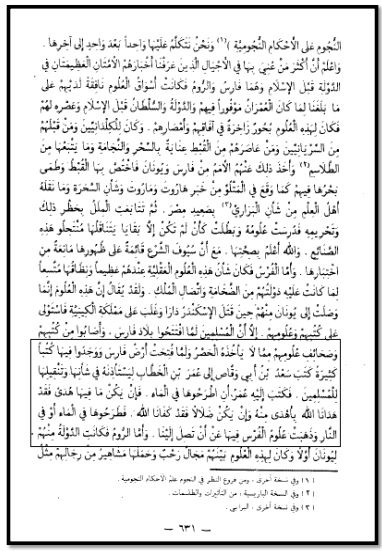 النُّجُومِ عَلَى الأَحْكَامِ النُّجُومِيَّةِ (١) وَنَحْنُ نَتَكَلَّمُ عَلَيْهَا وَاحِداً بَعْدَ وَاحِدٍ إِلَى آخِرِهَا .
وَاعْلَمْ أَنَّ أَكْثَرَ مَنْ عُنِيَ بِهَا فِي الأَجْيَالِ الَّذِينَ عَرَفْنَا أَخْبَارَهُمْ الأُمَّتَانِ العَظِيمَتَانِ فِي
الدَّوْلَةِ قَبْلَ الإِسْلَامِ وَهُمَا فَارِسُ وَالرُّومُ فَكَانَتْ أَسْوَاقُ العُلُومِ نَافِقَةً لَدَيْهِمْ عَلَى
مَا بَلَغَنَا لِمَا كَانَ العُمْرَانُ مَوْفُوراً فِيهِمْ وَالدَّوْلَةُ وَالسُّلْطَانُ قَبْلَ الإِسْلَامِ وَعَصْرِهِ لَهُمْ
فَكَانَ لِهَذِهِ العُلُومِ بُحُورٌ زَاخِرَةٌ فِي آفَاقِهِمْ وَأَمْصَارِهِمْ . وَكَانَ لِلْكِلْدَانِيِّينَ وَمَنْ قَبْلَهُمْ
مِنَ السُّرْيَانِيِّينَ وَمَنْ عَاصَرَهُمْ مِنَ القِبْطِ عِنَايَةٌ بِالسِّحْرِ وَالنِّجَامَةِ وَمَا يَتْبَعُهَا مِنَ
الطَّلَاسِمِ (٢) وَأَخَذَ ذَلِكَ عَنْهُمْ الأُمَمُ مِنْ فَارِسَ وَيُونَانَ فَاخْتَصَّ بِهَا القِبْطُ وَطَمَى
بَحْرُهَا فِيهِمْ كَمَا وَقَعَ فِي المَتْلُوِّ مِنْ خَبَرِ هَارُوتَ وَمَارُوتَ وَشَأْنِ السَّحَرَةِ وَمَا نَقَلَهُ
أَهْلُ العِلْمِ مِنْ شَأْنِ البَرَارِيِّ (٣) بِصَعِيدِ مِصْرَ . ثُمَّ تَتَابَعَتِ المِلَلُ بِحَظْرِ ذَلِكَ
وَتَحْرِيمِهِ فَدَرَسَتْ عُلُومُهُ وَبَطَلَتْ كَأَنْ لَمْ تَكُنْ إِلَّا بَقَايَا يَتَنَاقَلُهَا مُنْتَحِلُو هَذِهِ
الصَّنَائِعِ . وَاللهُ أَعْلَمُ بِصِحَّتِهَا . مَعَ أَنَّ سُيُوفَ الشَّرْعِ قَائِمَةٌ عَلَى ظُهُورِهَا مَانِعَةٌ مِنِ
اخْتِبَارِهَا . وَأَمَّا الفُرْسُ فَكَانَ شَأْنُ هَذِهِ العُلُومِ العَقْلِيَّةِ عِنْدَهُمْ عَظِيماً وَنِطَاقُهَا مُتَّسِعاً
لِمَا كَانَتْ عَلَيْهِ دَوْلَتُهُمْ مِنَ الضَّخَامَةِ وَاتِّصَالِ المُلْكِ . وَلَقَدْ يُقَالُ إِنَّ هَذِهِ العُلُومَ إِنَّمَا
وَصَلَتْ إِلَى يُونَانَ مِنْهُمْ حِينَ قَتَلَ الإِسْكَنْدَرُ دَارَا وَغَلَبَ عَلَى مَمْلَكَةِ الكِينِيَّةِ فَاسْتَوْلَى
عَلَى كُتُبِهِمْ وَعُلُومِهِمْ . إِلَّا أَنَّ المُسْلِمِينَ لَمَّا افْتَتَحُوا بِلَادَ فَارِسَ ، وَأَصَابُوا مِنْ كُتُبِهِمْ
وَصَحَائِفِ عُلُومِهِمْ مِمَّا لَا يَأْخُذُهُ الحَصْرُ وَلَمَّا فُتِحَتْ أَرْضُ فَارِسَ وَوَجَدُوا فِيهَا كُتُباً
كَثِيرَةً كَتَبَ سَعْدُ بْنُ أَبِي وَقَّاصٍ إِلَى عُمَرَ بْنِ الخَطَّابِ لِيَسْتَأْذِنَهُ فِي شَأْنِهَا وَتَنْقِيلِهَا
لِلْمُسْلِمِينَ . فَكَتَبَ إِلَيْهِ عُمَرُ أَنِ اطْرَحُوهَا فِي المَاءِ . فَإِنْ يَكُنْ مَا فِيهَا هُدًى فَقَدْ
هَدَانَا اللهُ بِأَهْدَى مِنْهُ وَإِنْ يَكُنْ ضَلَالاً فَقَدْ كَفَانَا اللهُ . فَطَرَحُوهَا فِي المَاءِ أَوْ فِي
النَّارِ وَذَهَبَتْ عُلُومُ الفُرْسِ فِيهَا عَنْ أَنْ تَصِلَ إِلَيْنَا . وَأَمَّا الرُّومُ فَكَانَتِ الدَّوْلَةُ مِنْهُمْ
لِيُونَانَ أَوَّلاً وَكَانَ لِهَذِهِ العُلُومِ بَيْنَهُمْ مَجَالٌ رَحْبٌ وَحَمَلَهَا مَشَاهِيرُ مِنْ رِجَالِهِمْ مِثْلُ
(١) وفي نسخة أخرى : ومن فروع النظر في النجوم علم الأحكام النجومية .
(٢) وفي النسخة الباريسية : من التأثيرات والطلسمات .
(٣) وفي نسخة أخرى : البرابي .
— ٦٣١ —